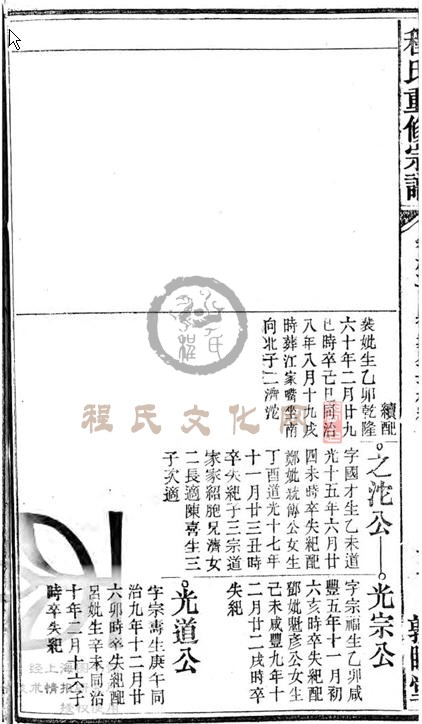 程氏重修宗譜
續配
裴妣生乙卯乾隆
六十年二月廿九
巳時卒己巳同治
八年八月十九戌
時葬江家嘴坐南
向北子二濟沱
之沱公
字國才生乙未道
光十五年六月廿
四未時卒失紀配
鄭妣統傳公女生
丁酉道光十七年
十一月廿三丑時
卒失紀子三宗道
家家紹胞兄濟女
二長適陳喜生三
子次適
光宗公
字宗福生乙卯咸
豐五年十一月初
六亥時卒失紀配
鄧妣魁彥公女生
己未咸豐九年十
二月廿二戌時卒
失紀
光道公
字宗壽生庚午同
治九年十二月廿
六卯時卒失紀配
呂妣生辛未同治
十年二月十六子
時卒失紀
程氏文化网
经上海
术情报